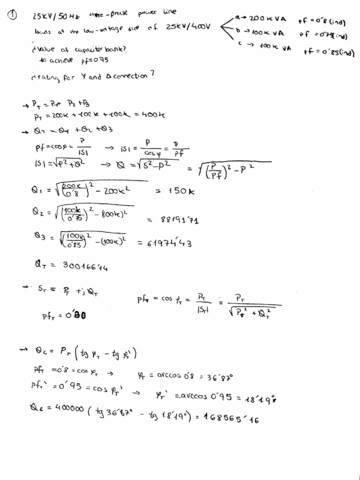 ① 25KV/50Hz three-phase power line
loads at the low-voltage side of 25KV/400V
a → 200KVA pf=0'8(ind)
b → 100KVA pf=0'75(ind)
c → 100KVA pf=0'85(ind)
¿value of capacitor bank?
to achieve pf=0'95
¿rating for Y and Δ connection?
→ P_T = P_1 + P_2 + P_3
P_T = 200k + 100k + 100k = 400k
→ Q_T = Q_1 + Q_2 + Q_3
pf = cos φ = P/|S| → |S| = P/cos φ = P/pf
|S| = √(P²+Q²) → Q = √(S²-P²) = √((P/pf)² - P²)
Q_1 = √((200k/0'8)² - 200k²) = 150k
Q_2 = √((100k/0'75)² - (100k)²) = 88191'71
Q_3 = √((100k/0'85)² - (100k)²) = 61974'43
Q_T = 300166'14
→ S_T = P_T + jQ_T
pf_T = cos φ_T = P_T/|S_T| = P_T/√(P_T² + Q_T²)
pf_T = 0'80
→ Q_c = P_T (tg φ_T - tg φ_T')
pf_T = 0'8 = cos φ_T → φ_T = arccos 0'8 = 36'87°
pf_T' = 0'95 = cos φ_T' → φ_T' = arccos 0'95 = 18'19°
Q_c = 400000 (tg 36'87° - tg 18'19°) = 168565'16